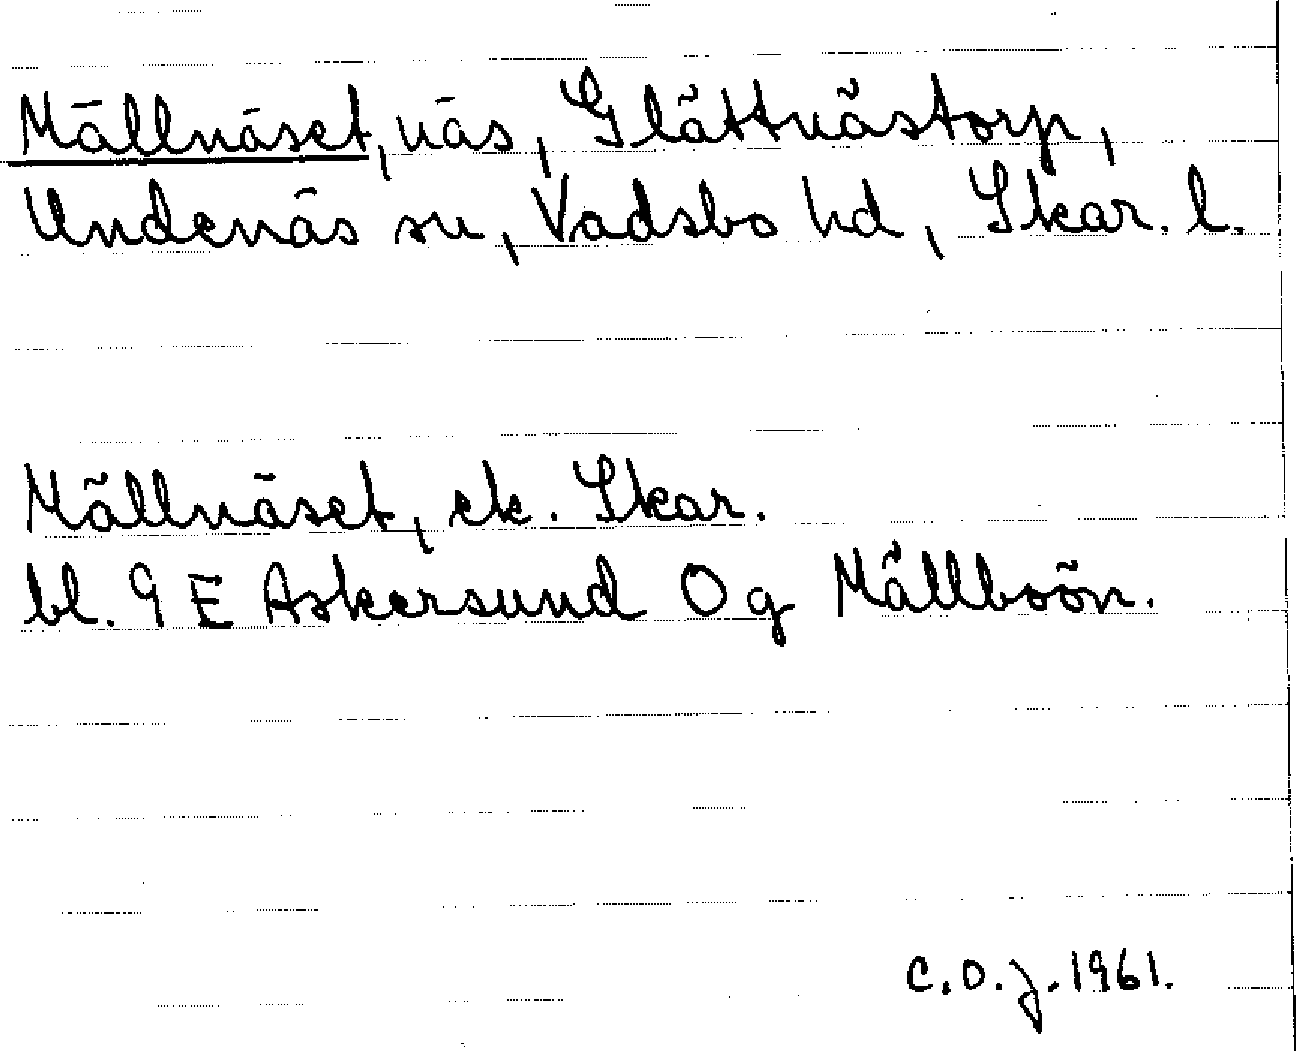 Mällnäset, näs, Glättnästorp,
Undenäs sn, Vadsbo hd, Skar. l.
Mällnäset, ek. Skar.
bl. 9 E Askersund 0 g Mällboön.
C.O.J. 1961.